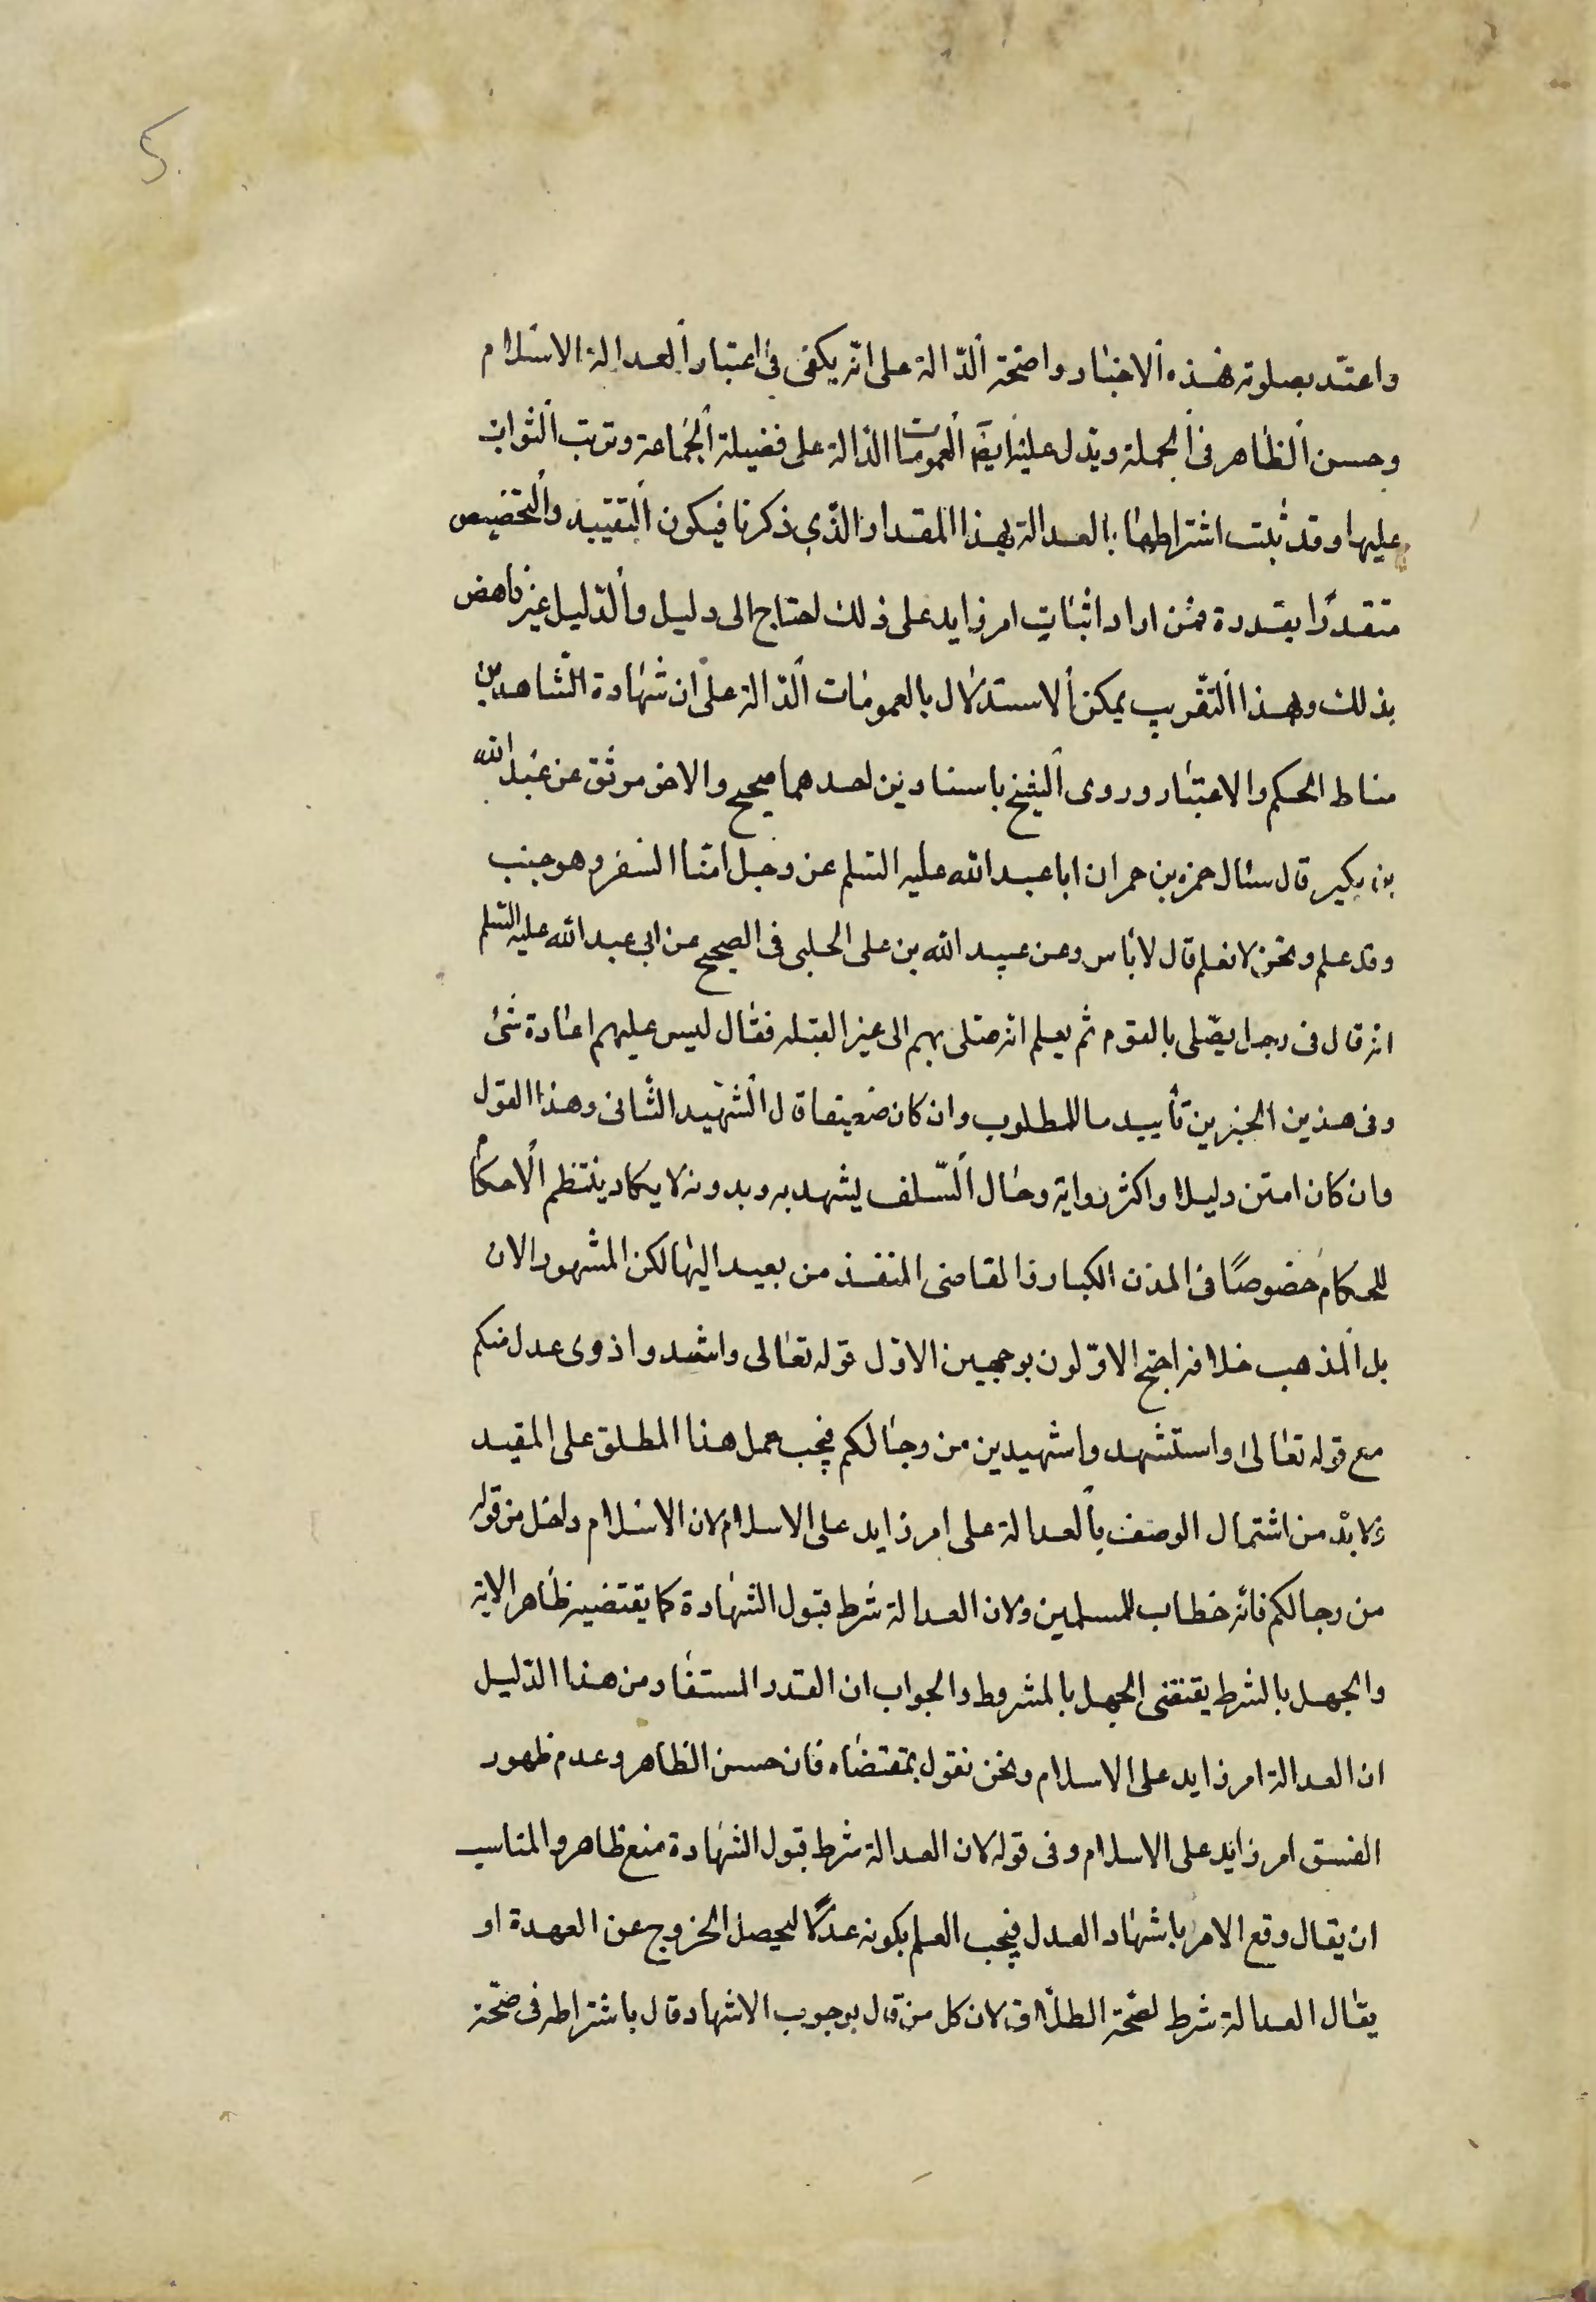 5
واعتد بصلوته فهذه الاخبار واضحة الدّالة على انّه يكفى فى اعتبار العدالة الاسلام
وحسن الظاهر فى الجملة ويدل عليه ايضا العمومات الدالة على فضيلة الجماعة وترتب الثواب
عليها وقد ثبت اشتراطها بالعدالة بهذا المقدار الّذى ذكرنا فيكون التقييد والتخصيص
متقدرا بقدرة فمن اراد اثبات امر زايد على ذلك احتاج الى دليل والدّليل غير ناهض
بذلك وبهذا التقريب يمكن الاستدلال بالعمومات الدّالة على ان شهادة الشاهدين
مناط الحكم والاعتبار وروى الشيخ باسنادين احدهما صحيح والاخر موثق عن عبد الله
بن بكير قال سئال حمزه بن حمران ابا عبد الله عليه السّلم عن رجل امّنا السفر وهو جنب
وقد علم ونحن لا نعلم قال لا باس وعن عبيد الله بن على الحلبى فى الصحيح عن ابى عبد الله عليه السّلم
انه قال فى رجل يصّلى بالقوم ثم يعلم انه صلى بهم الى غير القبله فقال ليس عليهم اعادة شئ
وفى هذين الخبرين تأييد ما للمطلوب وان كان ضعيفا قال الشهيد الثانى وهذا القول
وان كان امتن دليلا واكثر رواية وحال السّلف يشهد به وبدونه لا يكاد ينتظم الاحكام
للحكام خصوصًا فى المدن الكبار والقاضى المنفذ من بعيد اليها لكن المشهور الان
بل المذهب خلافه احتج الاوّلون بوجهين الاوّل قوله تعالى واشهدوا ذوى عدل منكم
مع قوله تعالى واستشهدوا شهيدين من رجالكم فيجب حمل هذا المطلق على المقيد
ولا بدّ من اشتمال الوصف بالعدالة على امر زايد على الاسلام لان الاسلام داخل من قوله
من رجالكم فانّه خطاب للمسلمين ولان العدالة شرط قبول الشهادة كما يقتضيه ظاهر الاية
والجهل بالشرط يقتضى الجهل بالمشروط والجواب ان القدر المستفاد من هذا الدّليل
ان العدالة امر زايد على الاسلام ونحن نقول بمقتضاه فان حسن الظاهر وعدم ظهور
الفسق امر زايد على الاسلام وفى قوله لان العدالة شرط قبول الشهادة منع ظاهر والمناسب
ان يقال وقع الامر باشهاد العدل فيجب العلم بكونه عدلا ليحصل الخروج عن العهدة او
يقال العدالة شرط لصّحة الطلاق لان كل من قال بوجوب الاشهاد قال باشتراطه فى صحّة